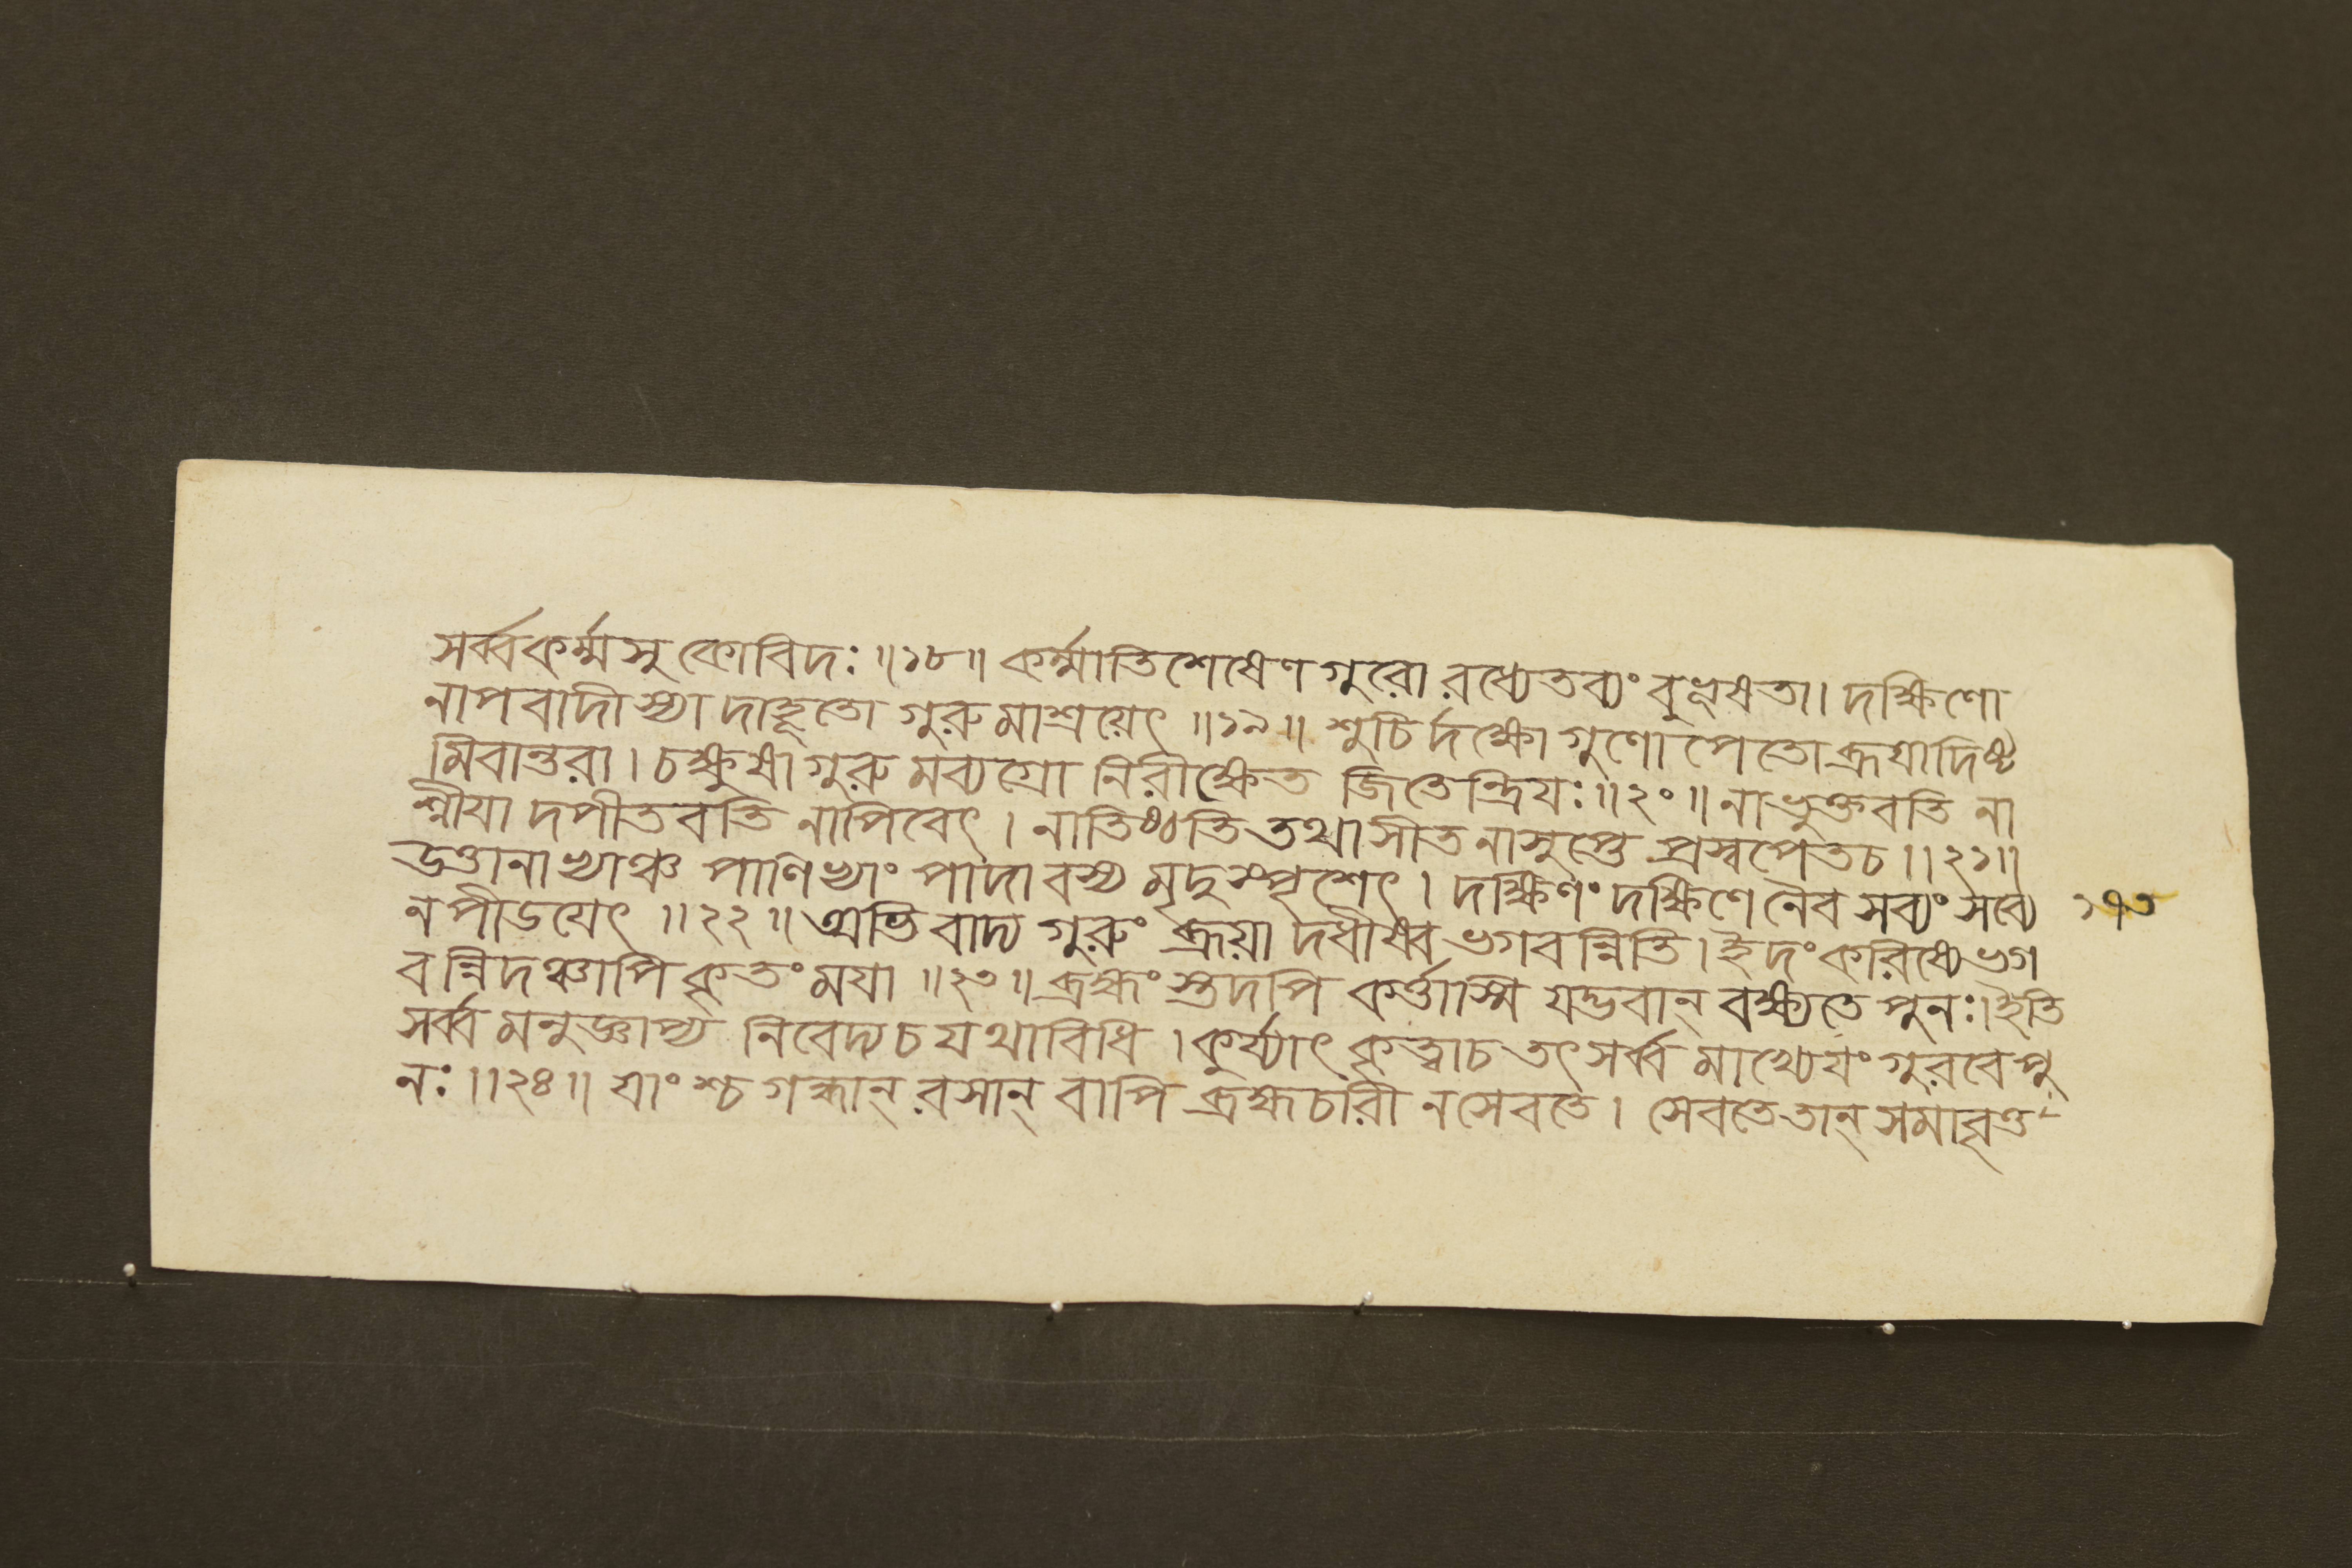 সর্ব্বকর্ম্মসু কোবিদঃ ॥১৮॥ কর্ম্মাতিশেষেণ গুরো রধ্যেতব্যং বুভূষতা। দক্ষিণো
নাপবাদী স্যা দাহূতো গুরু মাশ্রয়েৎ ॥১৯॥ শুচি র্দক্ষো গুণো পেতো ব্রূযাদিষ্ট
মিবান্তরা। চক্ষুষা গুরু মব্যগ্রো নিরীক্ষেত জিতেন্দ্রিযঃ॥২০॥ নাভুক্তবতি না
শ্নীযা দপীতবতি নাপিবেৎ। নাতিষ্ঠতি তথাসীত নাসুপ্তে প্রস্বপেতচ॥২১॥
উত্তানাভ্যাঞ্চ পাণিভ্যাং পাদাবস্য মৃদুস্পৃশেৎ। দক্ষিণং দক্ষিণে নৈব সব্যং সব্যে ১৭৩
ন পীডয়েৎ ॥২২॥ অভিবাদ্য গুরুং ব্রূয়া দধীষ্ব ভগবন্নিতি। ইদং করিষ্যে ভগ
বন্নিদঞ্চাপি কৃতং মযা ॥২৩॥ ব্রহ্মং স্তদপি কর্ত্তাস্মি যদ্ভবান্ বক্ষ্যতে পুনঃ। ইতি
সর্ব্ব মনুজ্ঞাপ্য নিবেদ্যচ যথাবিধি। কুর্য্যাৎ কৃত্বাচ তৎ সর্ব্ব মাখ্যেযং গুরবে পু
নঃ॥২৪॥ যাংশ্চ গন্ধান্ রসান্ বাপি ব্রহ্মচারী নসেবতে। সেবতে তান্ সমাবৃত্ত